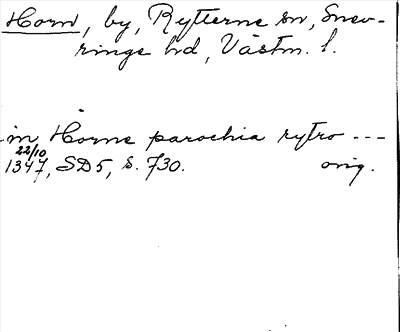 Horn, by, Rytterne sn, Snev-
ringe hd, Västm. l.
in Horne parochia rytro ---
22/10
1347, SD5, s. 730. orig.